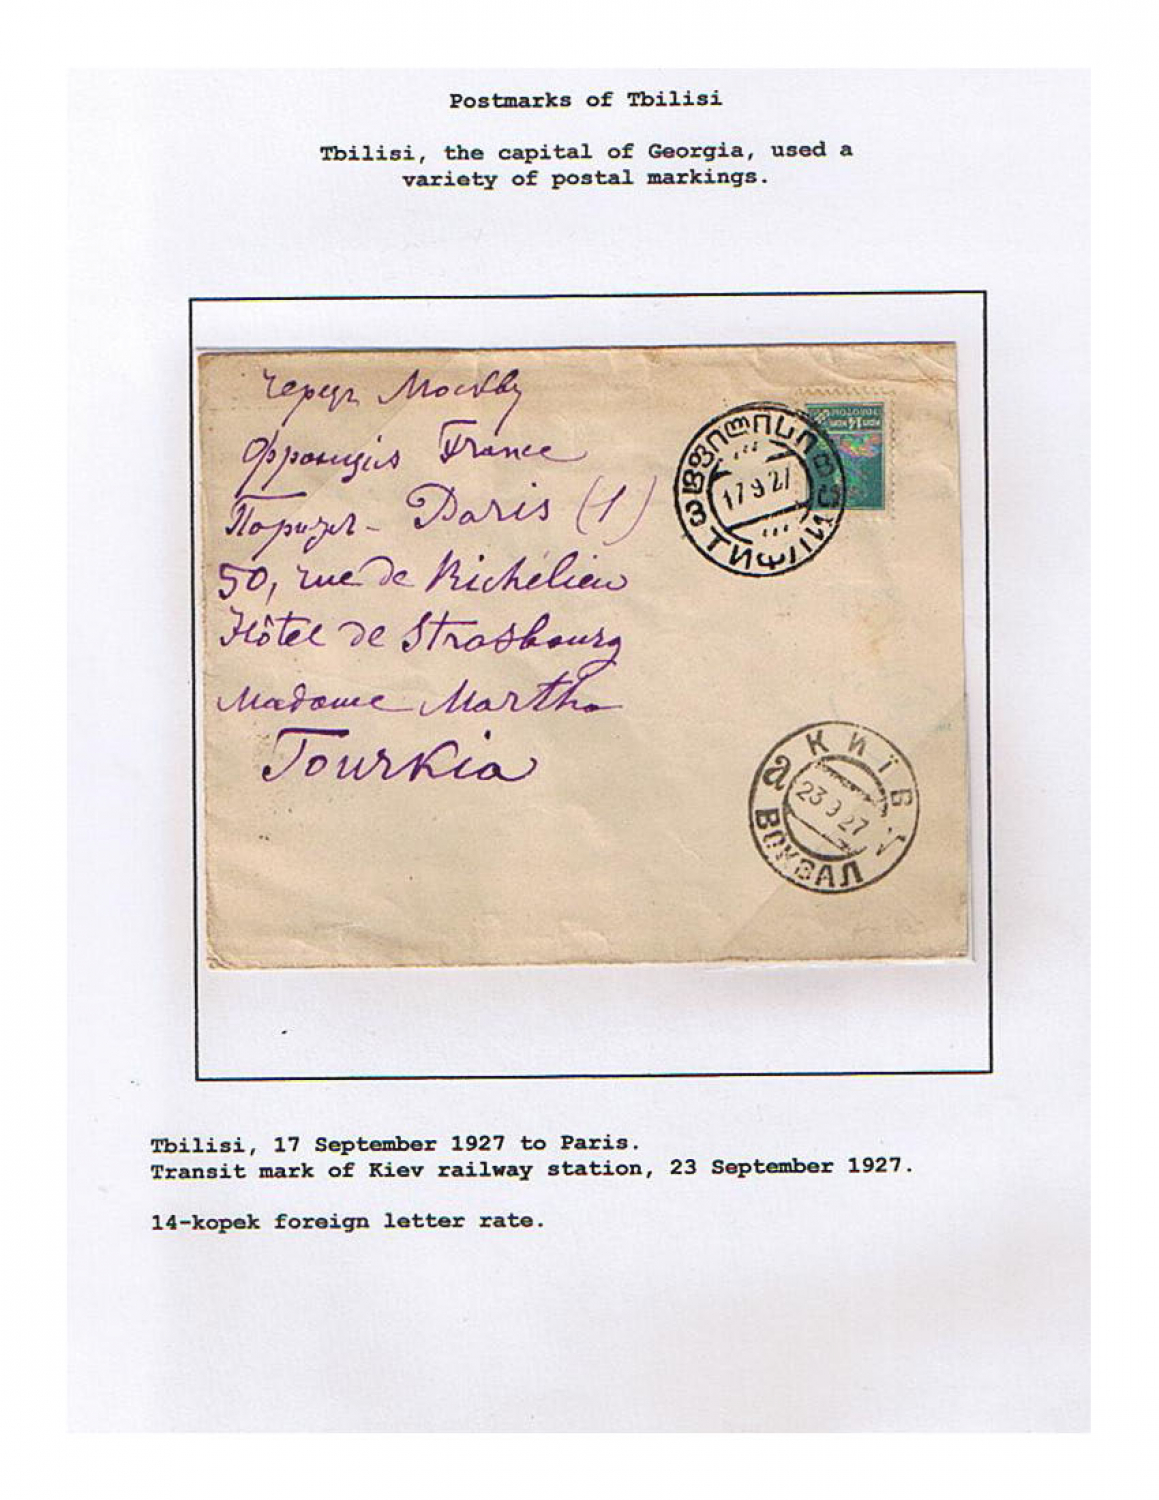 Postmarks of Tbilisi
Tbilisi, the capital of Georgia, used a
variety of postal markings.
Черезъ Москву
Франція France
Парижъ - Paris (1)
50, rue de Richélieu
Hôtel de Strasbourg
Madame Martha
Tourkia
17 9 27
ТИФЛИ
14 КОП
КИЇВ
23 9 27
а ВОКЗАЛ
Tbilisi, 17 September 1927 to Paris.
Transit mark of Kiev railway station, 23 September 1927.
14-kopek foreign letter rate.